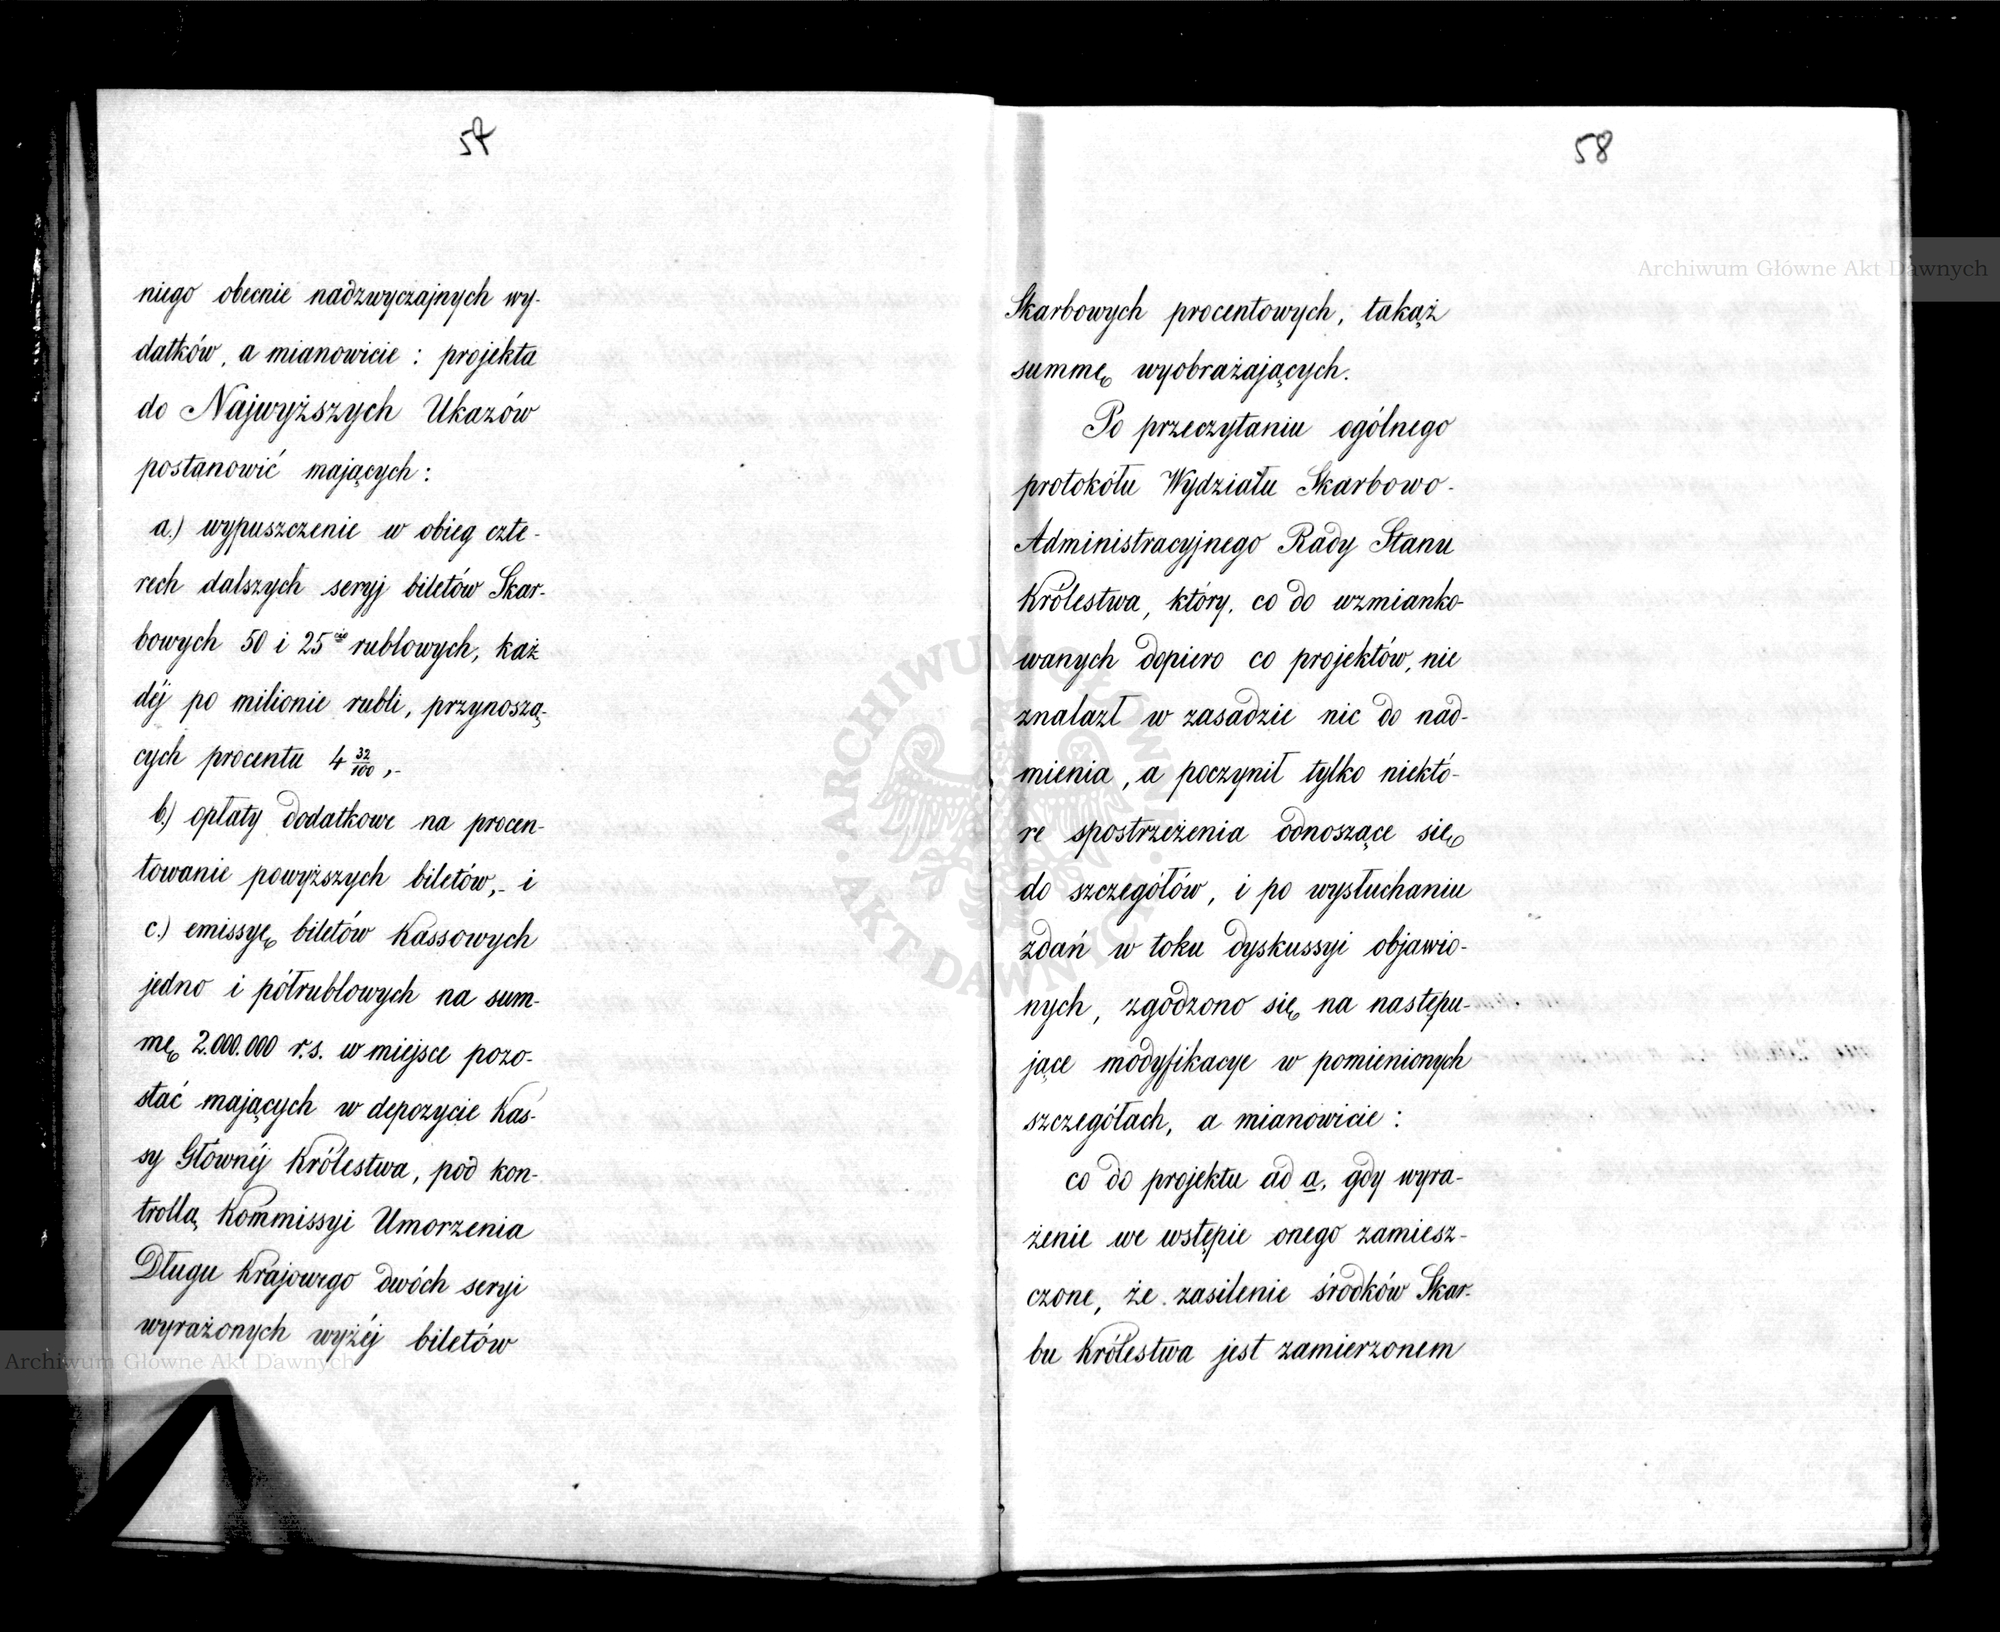 57
niego obecnie nadzwyczajnych wy-
datków, a mianowicie : projekta
do Najwyższych Ukazów
postanowić mających :
a.) wypuszczenie w obieg czte-
rech dalszych seryj biletów Skar-
bowych 50 i 25cio rublowych, każ
déj po milionie rubli, przynoszą-
cych procentu 4 32/100 ,-
b.) opłaty dodatkowe na procen-
towanie powyższych biletów,- i
c.) emissyę biletów Kassowych
jedno i półrublowych na sum-
mę 2.000.000 r.s. w miejsce pozo-
stać mających w depozycie Kas-
sy Głównéj Królestwa, pod kon-
trollą Kommissyi Umorzenia
Długu Krajowego dwóch seryi
wyrażonych wyżéj biletów
58
Skarbowych procentowych, takąż
summę wyobrażających.
Po przeczytaniu ogólnego
protokółu Wydziału Skarbowo-
Administracyjnego Rady Stanu
Królestwa, który, co do wzmianko-
wanych dopiero co projektów, nie
znalazł w zasadzie nic do nad-
mienia, a poczynił tylko niektó-
re spostrzeżenia odnoszące się
do szczegółów, i po wysłuchaniu
zdań w toku dyskussyi objawio-
nych, zgodzono się na następu-
jące modyfikacye w pomienionych
szczegółach, a mianowicie :
co do projektu ad a, gdy wyra-
żenie we wstępie onego zamiesz-
czone, że zasilenie środków Skar-
bu Królestwa jest zamierzonem
Archiwum Główne Akt Dawnych
Archiwum Główne Akt Dawnych